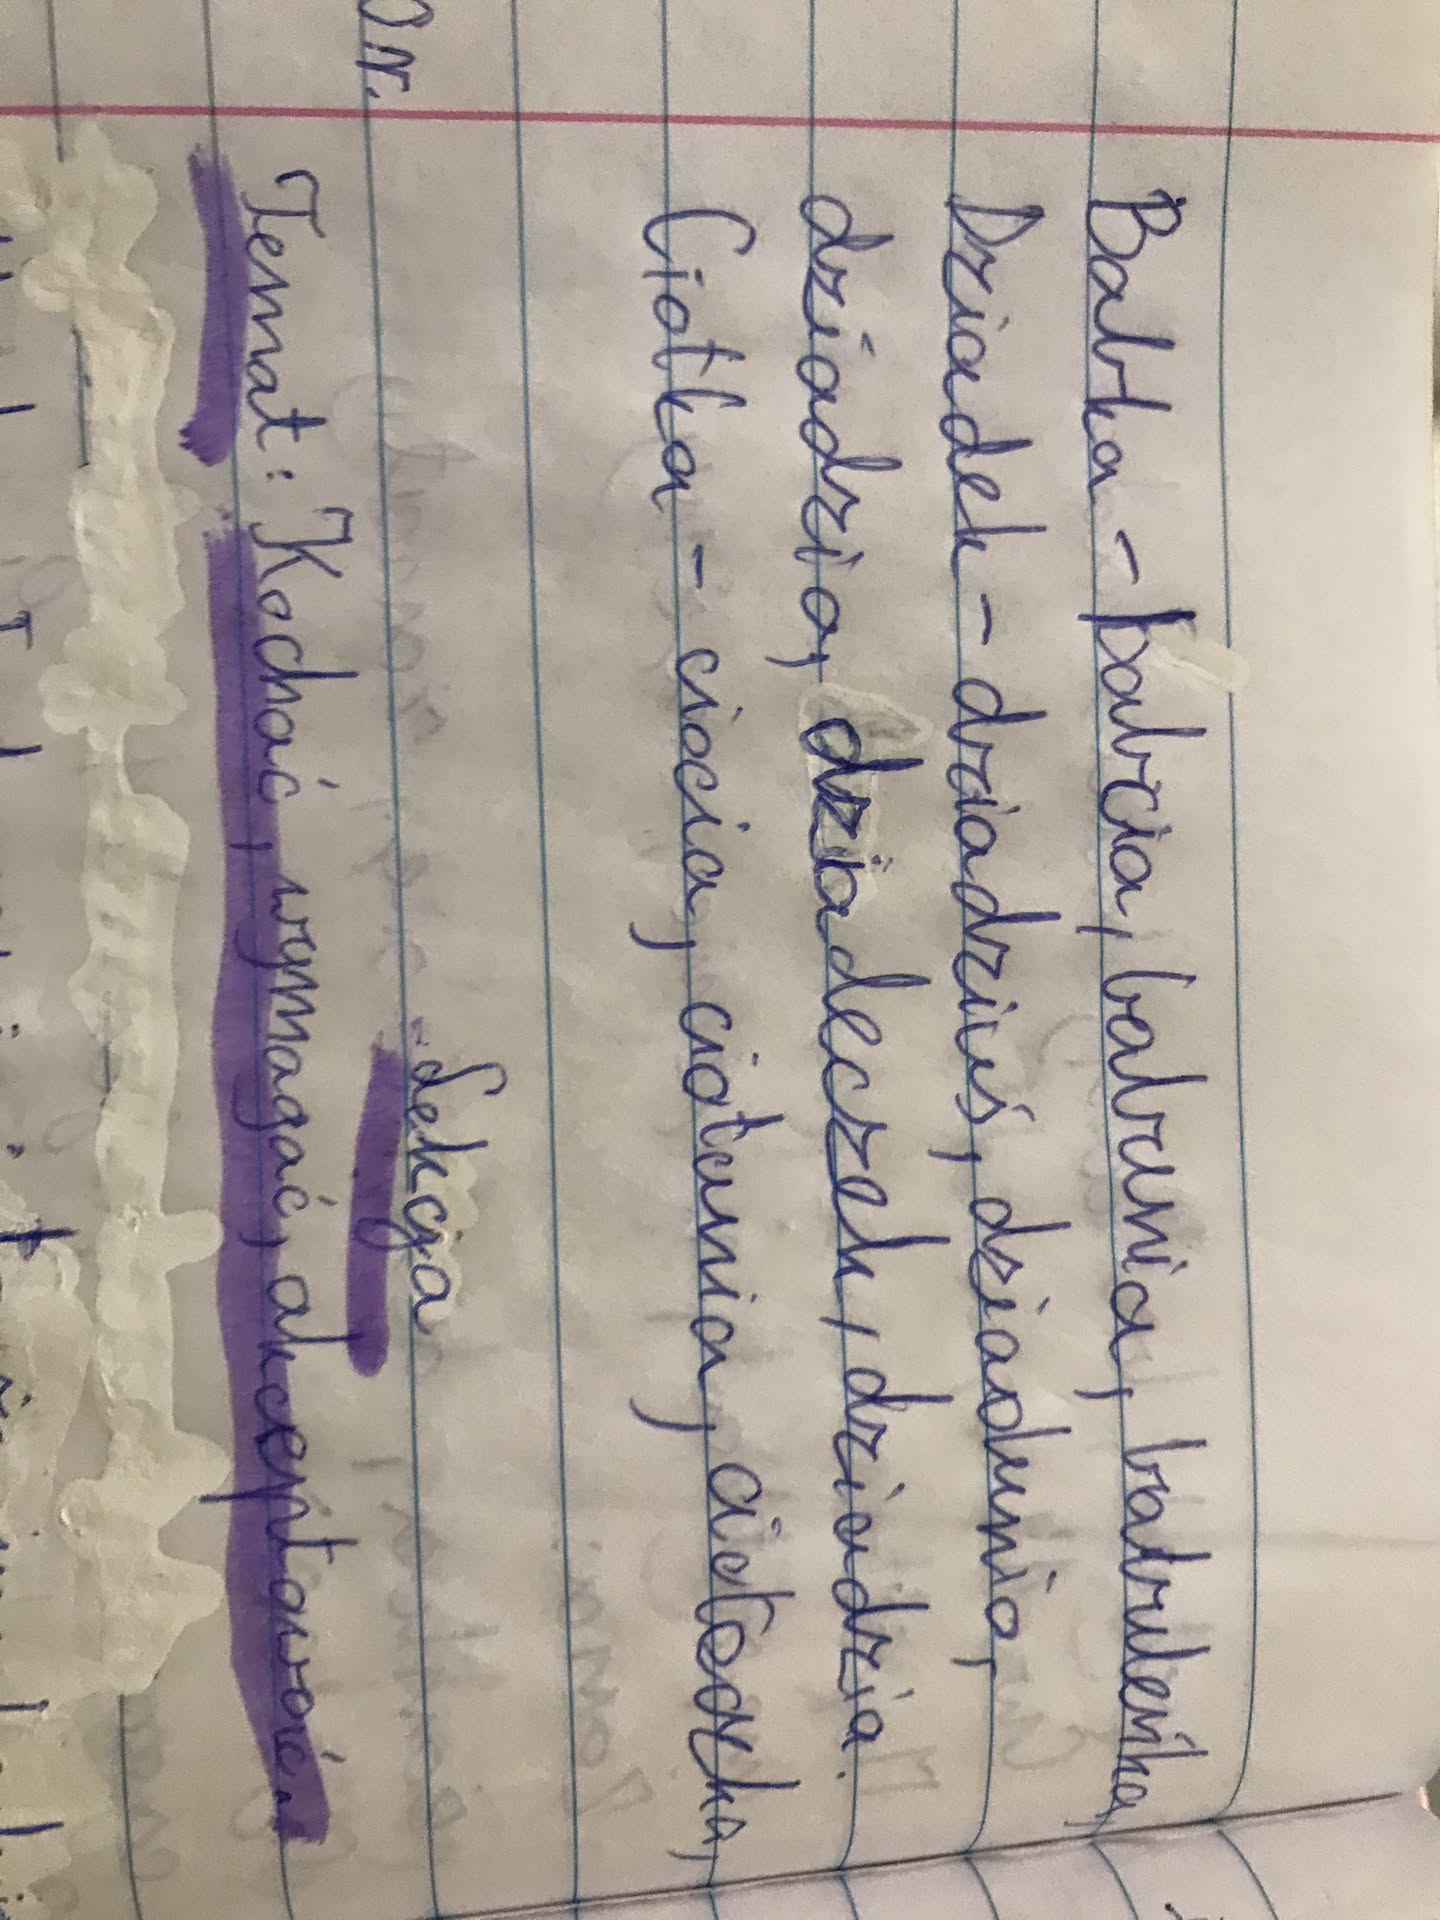 Babka - babcia, babunia, babuleńka,
Dziadek - dziadziuś, dziadunio,
dziadzio, dziadeczek, dziadzia.
Ciotka - ciocia, ciotunia, cioteczka,
Lekcja
Temat: Kochać, wymagać, akceptować.